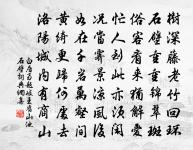 樹深藤老竹迴環
石壁重重錦翠斑
俗客看來猶解愛
忙人到此亦須閑
況當霽景涼風後
如在千巖萬壑間
黃綺更歸何處去
洛陽城內有商山
白居易題岐王舊山池
石壁詞典網書